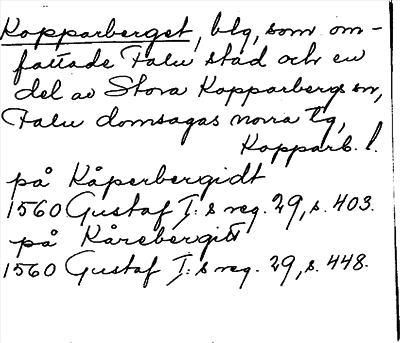 Kopparberget, blg, som om-
fattade Falu stad och en
del av Stora Kopparbergs sn,
Falu domsagas norra tg,
Kopparb. l.
på Kåperbergidt
1560 Gustaf I:s reg. 29, s. 403.
på Kårebergitt
1560 Gustaf I:s reg. 29, s. 448.